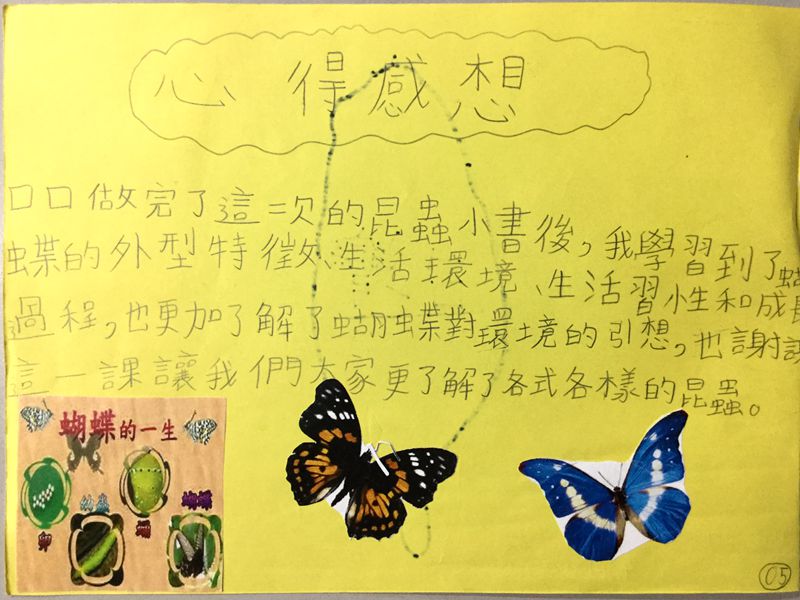 心得感想
口口做完了這二次的昆蟲小書後,我學習到了蝴
蝶的外型特徵、生活環境、生活習性和成長
過程,也更加了解了蝴蝶對環境的引想,也謝謝
這一課讓我們大家更了解了各式各樣的昆蟲。
蝴蝶的一生
卵
幼蟲
蛹
蝴蝶
05